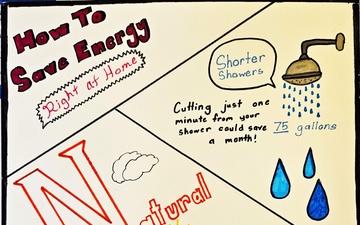 How To
Save Energy
Right at Home!
Shorter
Showers
Cutting just one
minute from your
shower could save
75 gallons
a month!
Natural